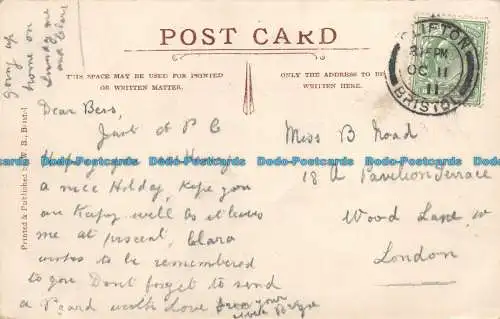 going up
home on
Sunday me
and Clara
POST CARD
THIS SPACE MAY BE USED FOR PRINTED
OR WRITTEN MATTER.
ONLY THE ADDRESS TO BE
WRITTEN HERE.
CLIFTON
PM
OC 11
11
BRISTOL
Printed & Published by W. B., Bristol
Dear Bers,
Just a P C
Hoping you Having
a nice Holday, Hope you
are Keeping well as it leaves
me at present, Clara
wishes to be remembered
to you Dont forget to send
a Pcard with love from your
Miss B Noad
18 A Pavilion Terrace
Wood Lane, W
London